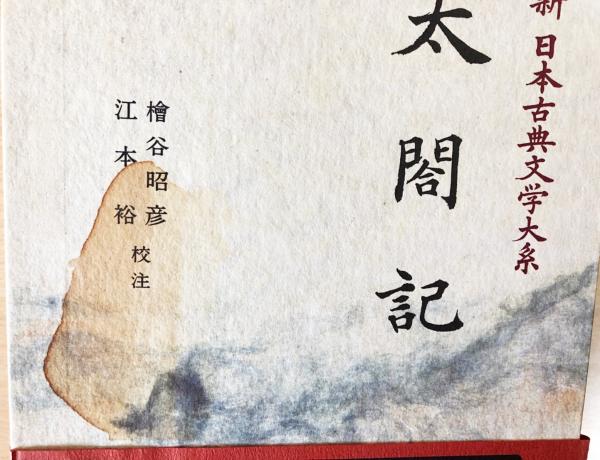 新 日本古典文学大系
太閤記
檜谷昭彦
江本裕
校注